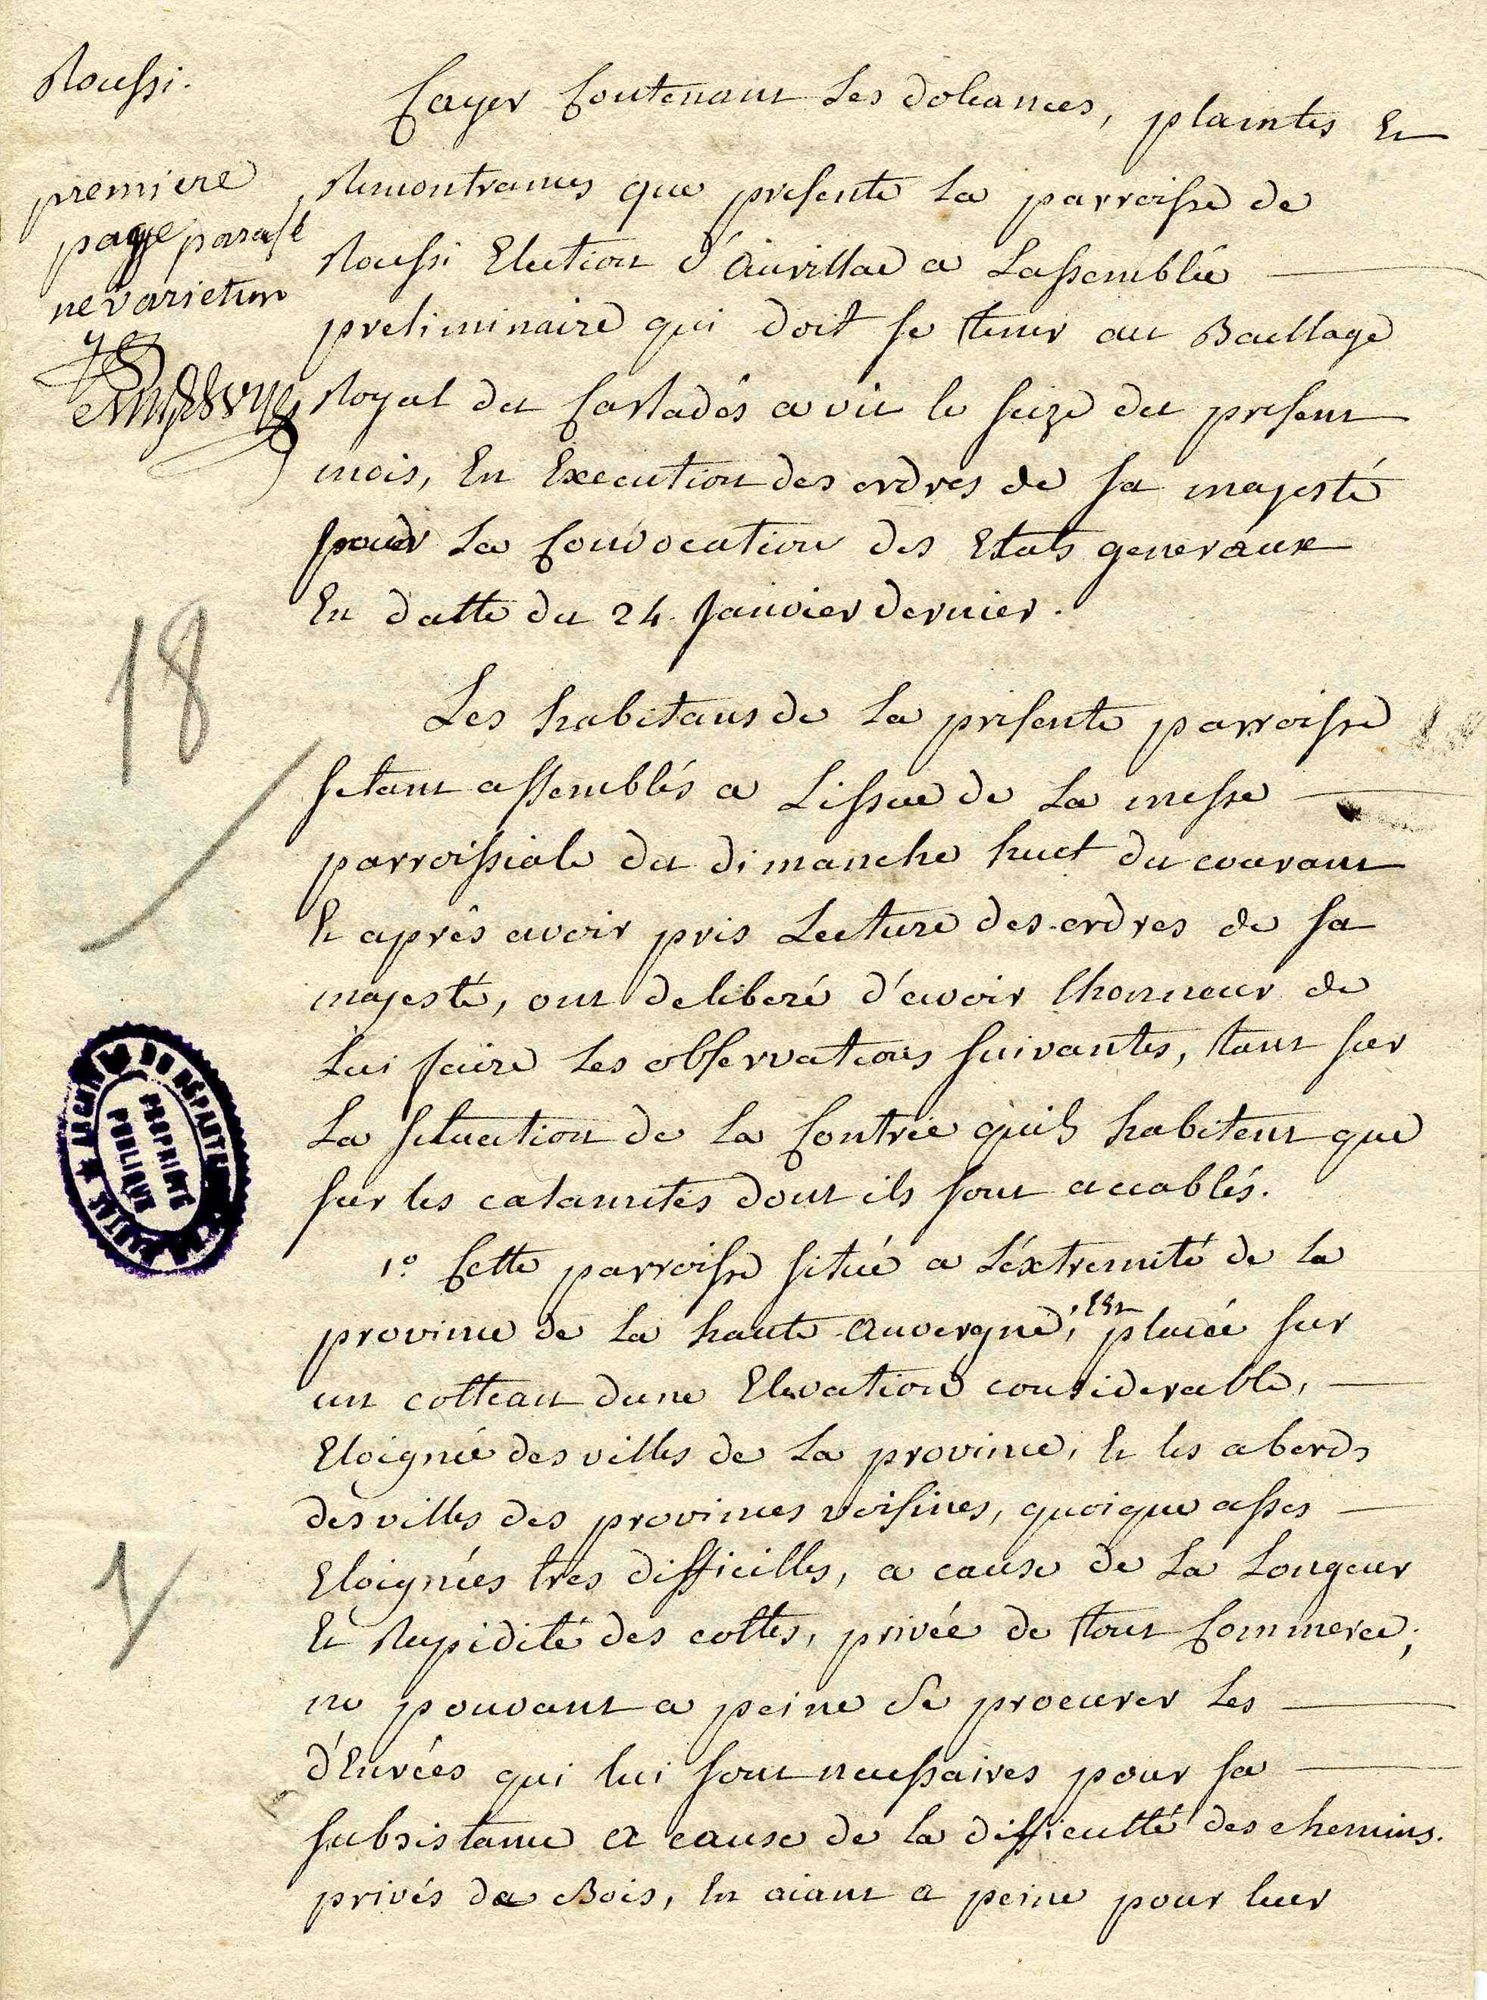 Roussi.
premiere
page paraffé
ne varietur
18
1
ARCHIVES DU DÉPARTEMENT DU CANTAL
PROPRIÉTÉ
PUBLIQUE
Cayer Contenant Les doleances, plaintes Et
Remontrances que presente La parroisse de
Roussi Election d'Aurillac a Lassemblée
preliminaire qui doit se tenir au Baillage
Royal du Carladés a vic le seize du present
mois, En Execution des ordres de sa majesté
pour La Convocation des Etats generaux
En datte du 24 Janvier dernier.
Les habitans de La presente parroisse
setant assemblés a Lissue de La messe
parroissiale du dimanche huit du courant
Et aprés avoir pris Lecture des ordres de sa
majesté, ont deliberé d'avoir lhonneur de
Lui faire Les observations suivantes, tant sur
La situation de La Contrée quils habitent que
sur les calamités dont ils sont accablés.
1º Cette parroisse située a L'éxtremité de la
province de La haute Auvergne, est placée sur
un cotteau dune Elevation considerable,
Eloignée des villes de La province, Et les abords
des villes des provinces voisines, quoique asses
Eloignées tres difficilles, a cause de La Longeur
Et Rapidité des cottes, privée de tout Commerce,
ne pouvant a peine Se procurer Les
d'Enrées qui lui sont necessaires pour sa
subsistance a cause de la difficulté des chemins.
privés de Bois, En aiant a peine pour leur